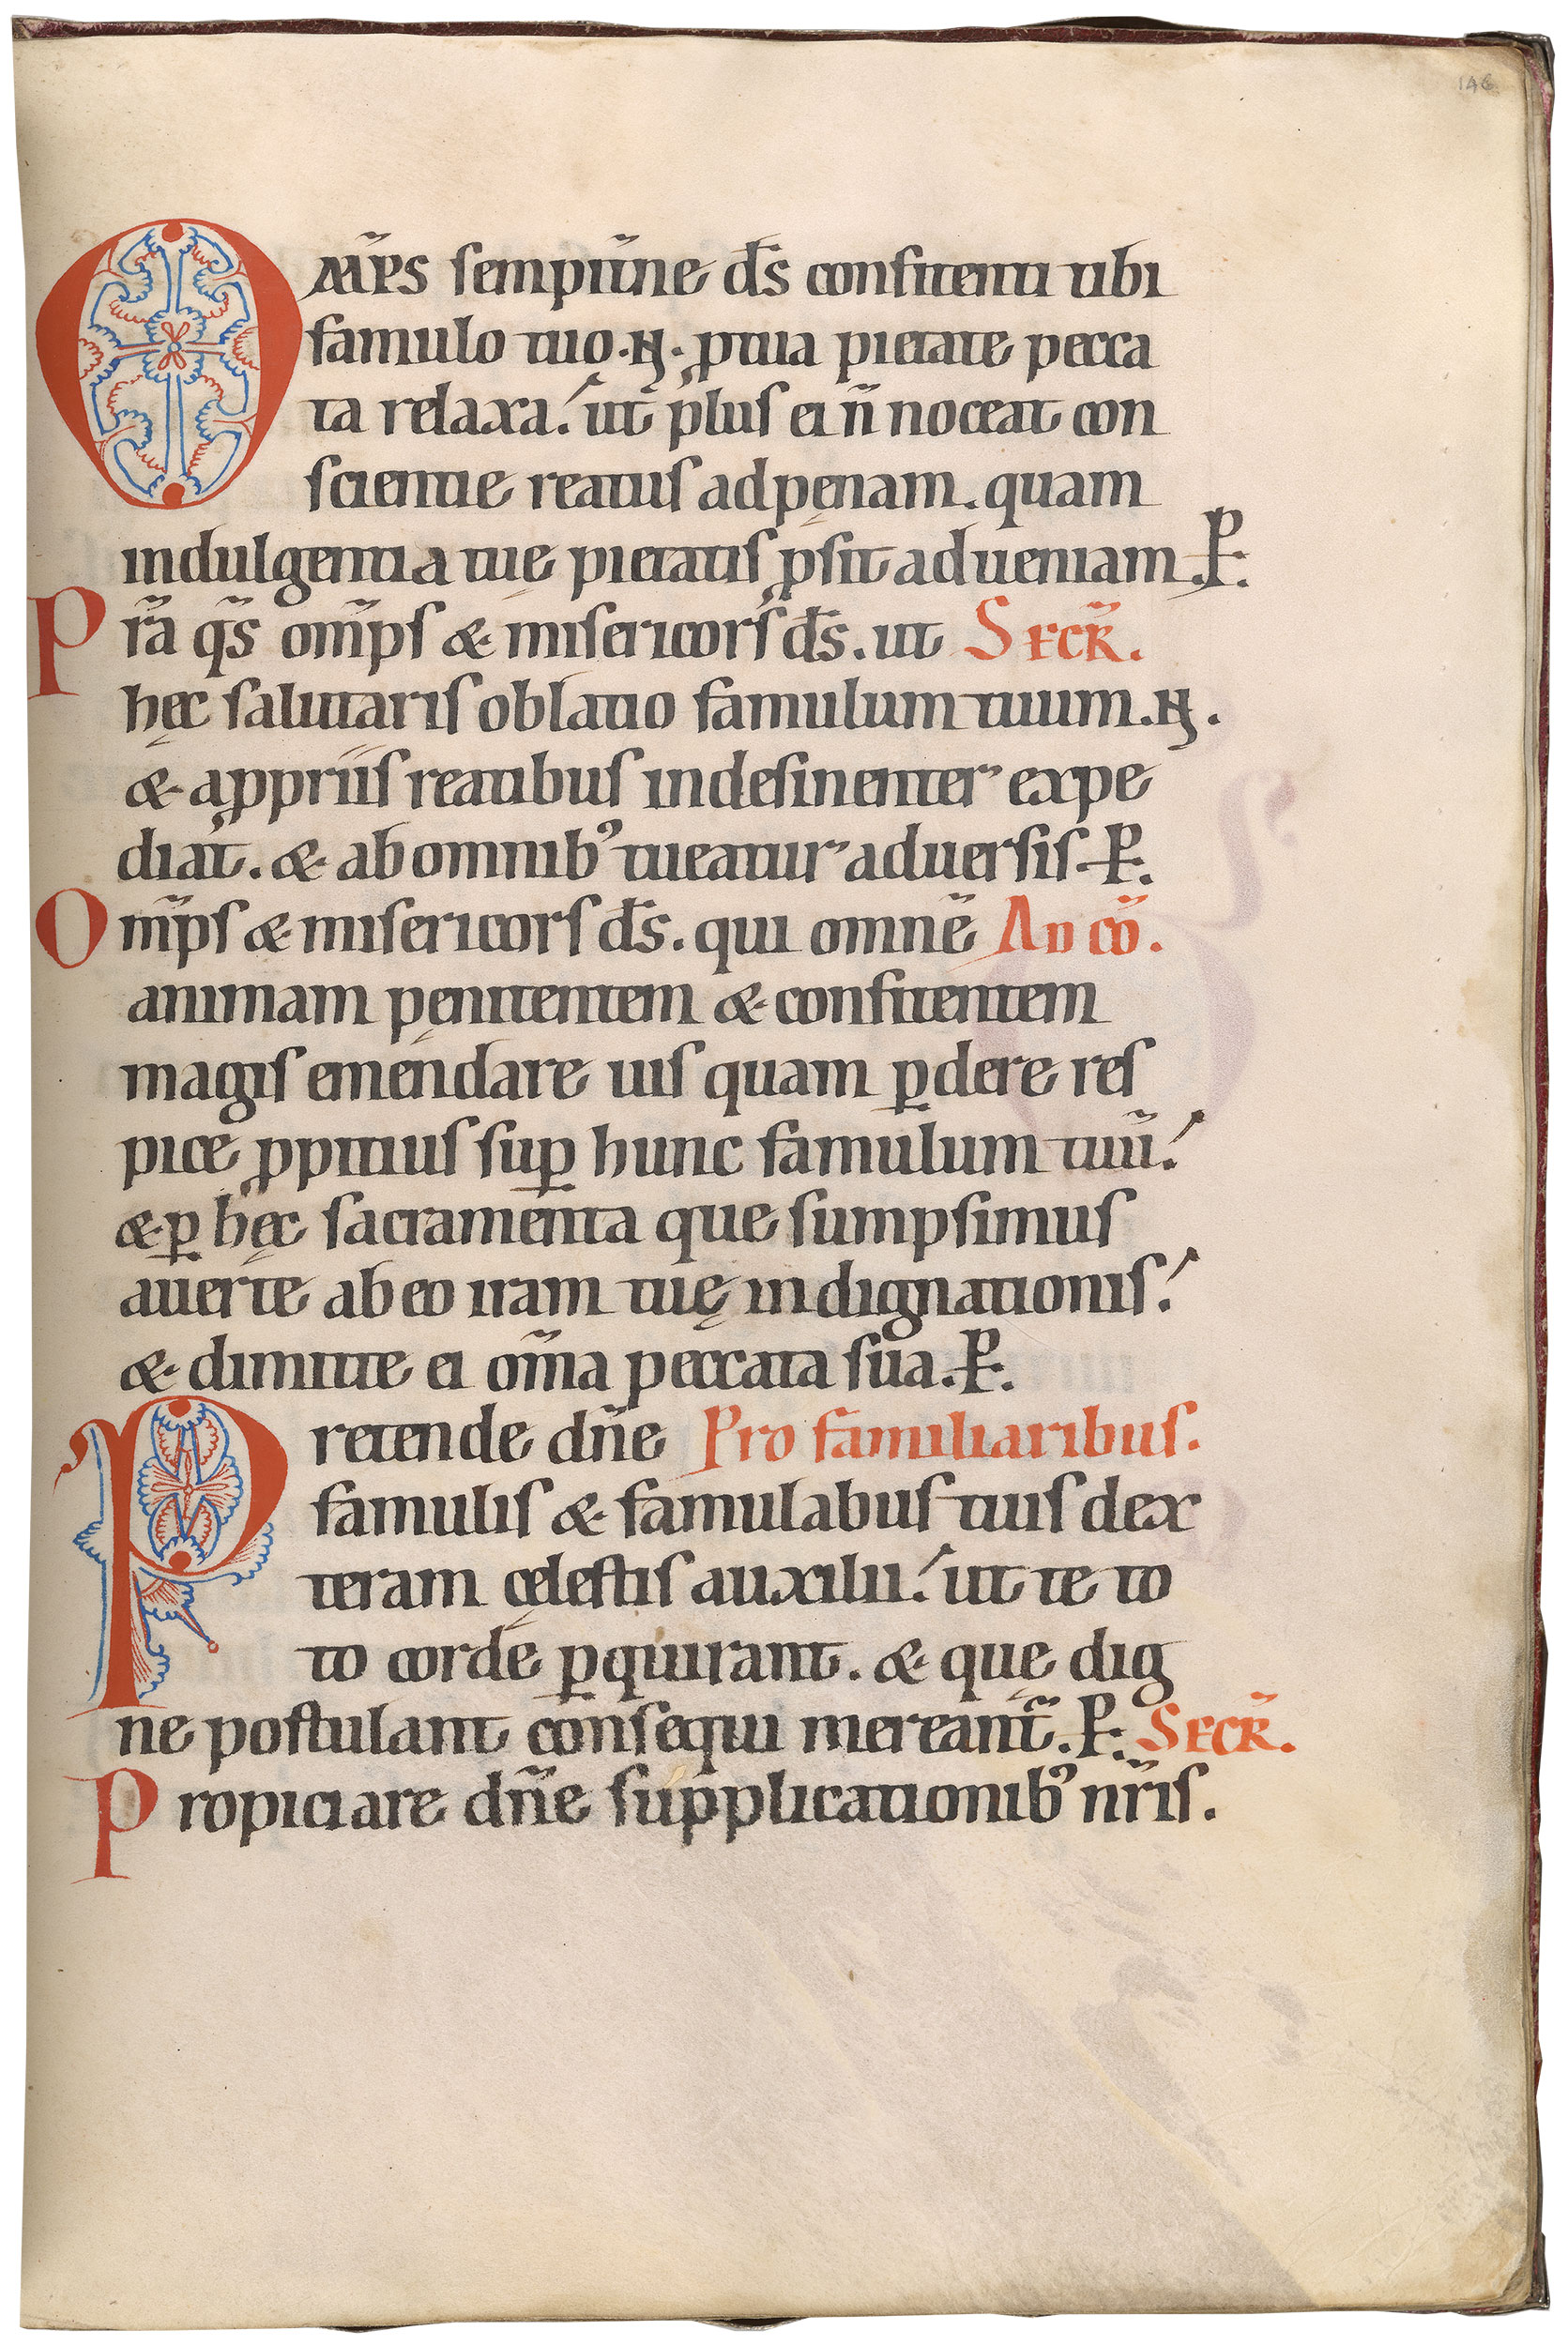 146
OMP̃S sempit̃ne d̄s confitenti tibi
famulo tuo .N. ꝓ tua pietate pecca
ta relaxa. ut plus ei n̄ noceat con
scientie reatus ad pęnam. quam
indulgentia tuę pietatis ꝓsit ad ueniam. P̱.
Pr̃a q̃s om̃ps & misericors d̄s. ut SECR̃.
hęc salutaris oblatio famulum tuum .N.
& a ꝓpriis reatibus indesinenter expe
diat. & ab omnibꝰ tueatur aduersis. P̱.
Om̃ps & misericors d̄s. qui omnẽ Ad cõ.
animam pęnitentem & confitentem
magis emendare uis quam ꝑdere res
pice ꝓpitius suꝑ hunc famulum tuũ.
& ꝑ hęc sacramenta que sumpsimus
auerte ab eo iram tuę indignationis.
& dimitte ei om̃a peccata sua. P̱.
Pretende dñe Pro familiaribus.
famulis & famulabus tuis dex
teram cęlestis auxilii. ut te to
to corde ꝑquirant. & quę dig
ne postulant consequi mereant̃. P̱. SECR̃.
Propiciare dñe supplicationibꝰ nr̃is.